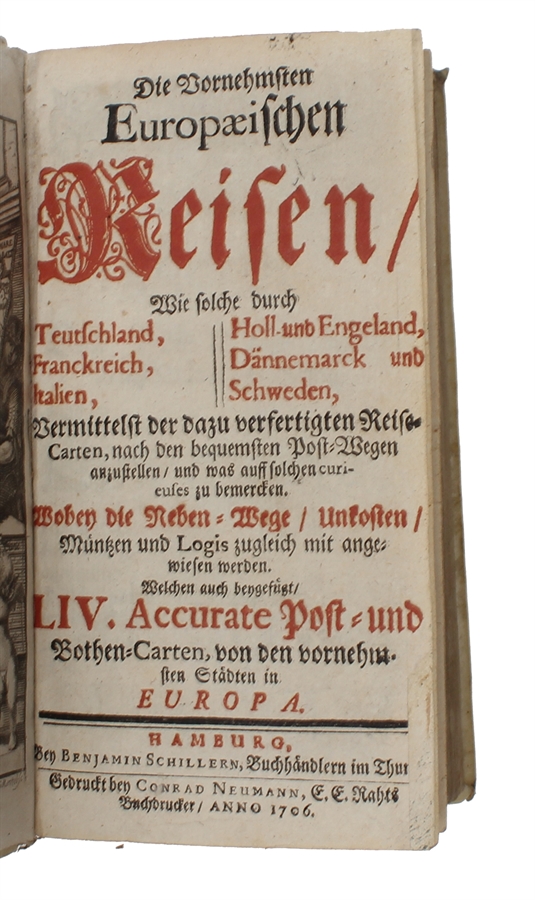 Die Vornehmsten
Europæischen
Reisen/
Wie solche durch
Teutschland,
Franckreich,
Italien,
Holl-und Engeland,
Dännemarck und
Schweden,
Vermittelst der dazu verfertigten Reise-
Carten, nach den bequemsten Post-Wegen
anzustellen/ und was auff solchen curi-
euses zu bemercken.
Wobey die Neben-Wege / Unkosten /
Müntzen und Logis zugleich mit ange-
wiesen werden.
Welchen auch beygefügt/
LIV. Accurate Post-und
Bothen-Carten, von den vornehm-
sten Städten in
EUROPA.
HAMBURG,
Bey BENJAMIN SCHILLERN, Buchhändlern im Thum
Gedruckt bey CONRAD NEUMANN, E. E. Rahts
Buchdrucker/ ANNO 1706.